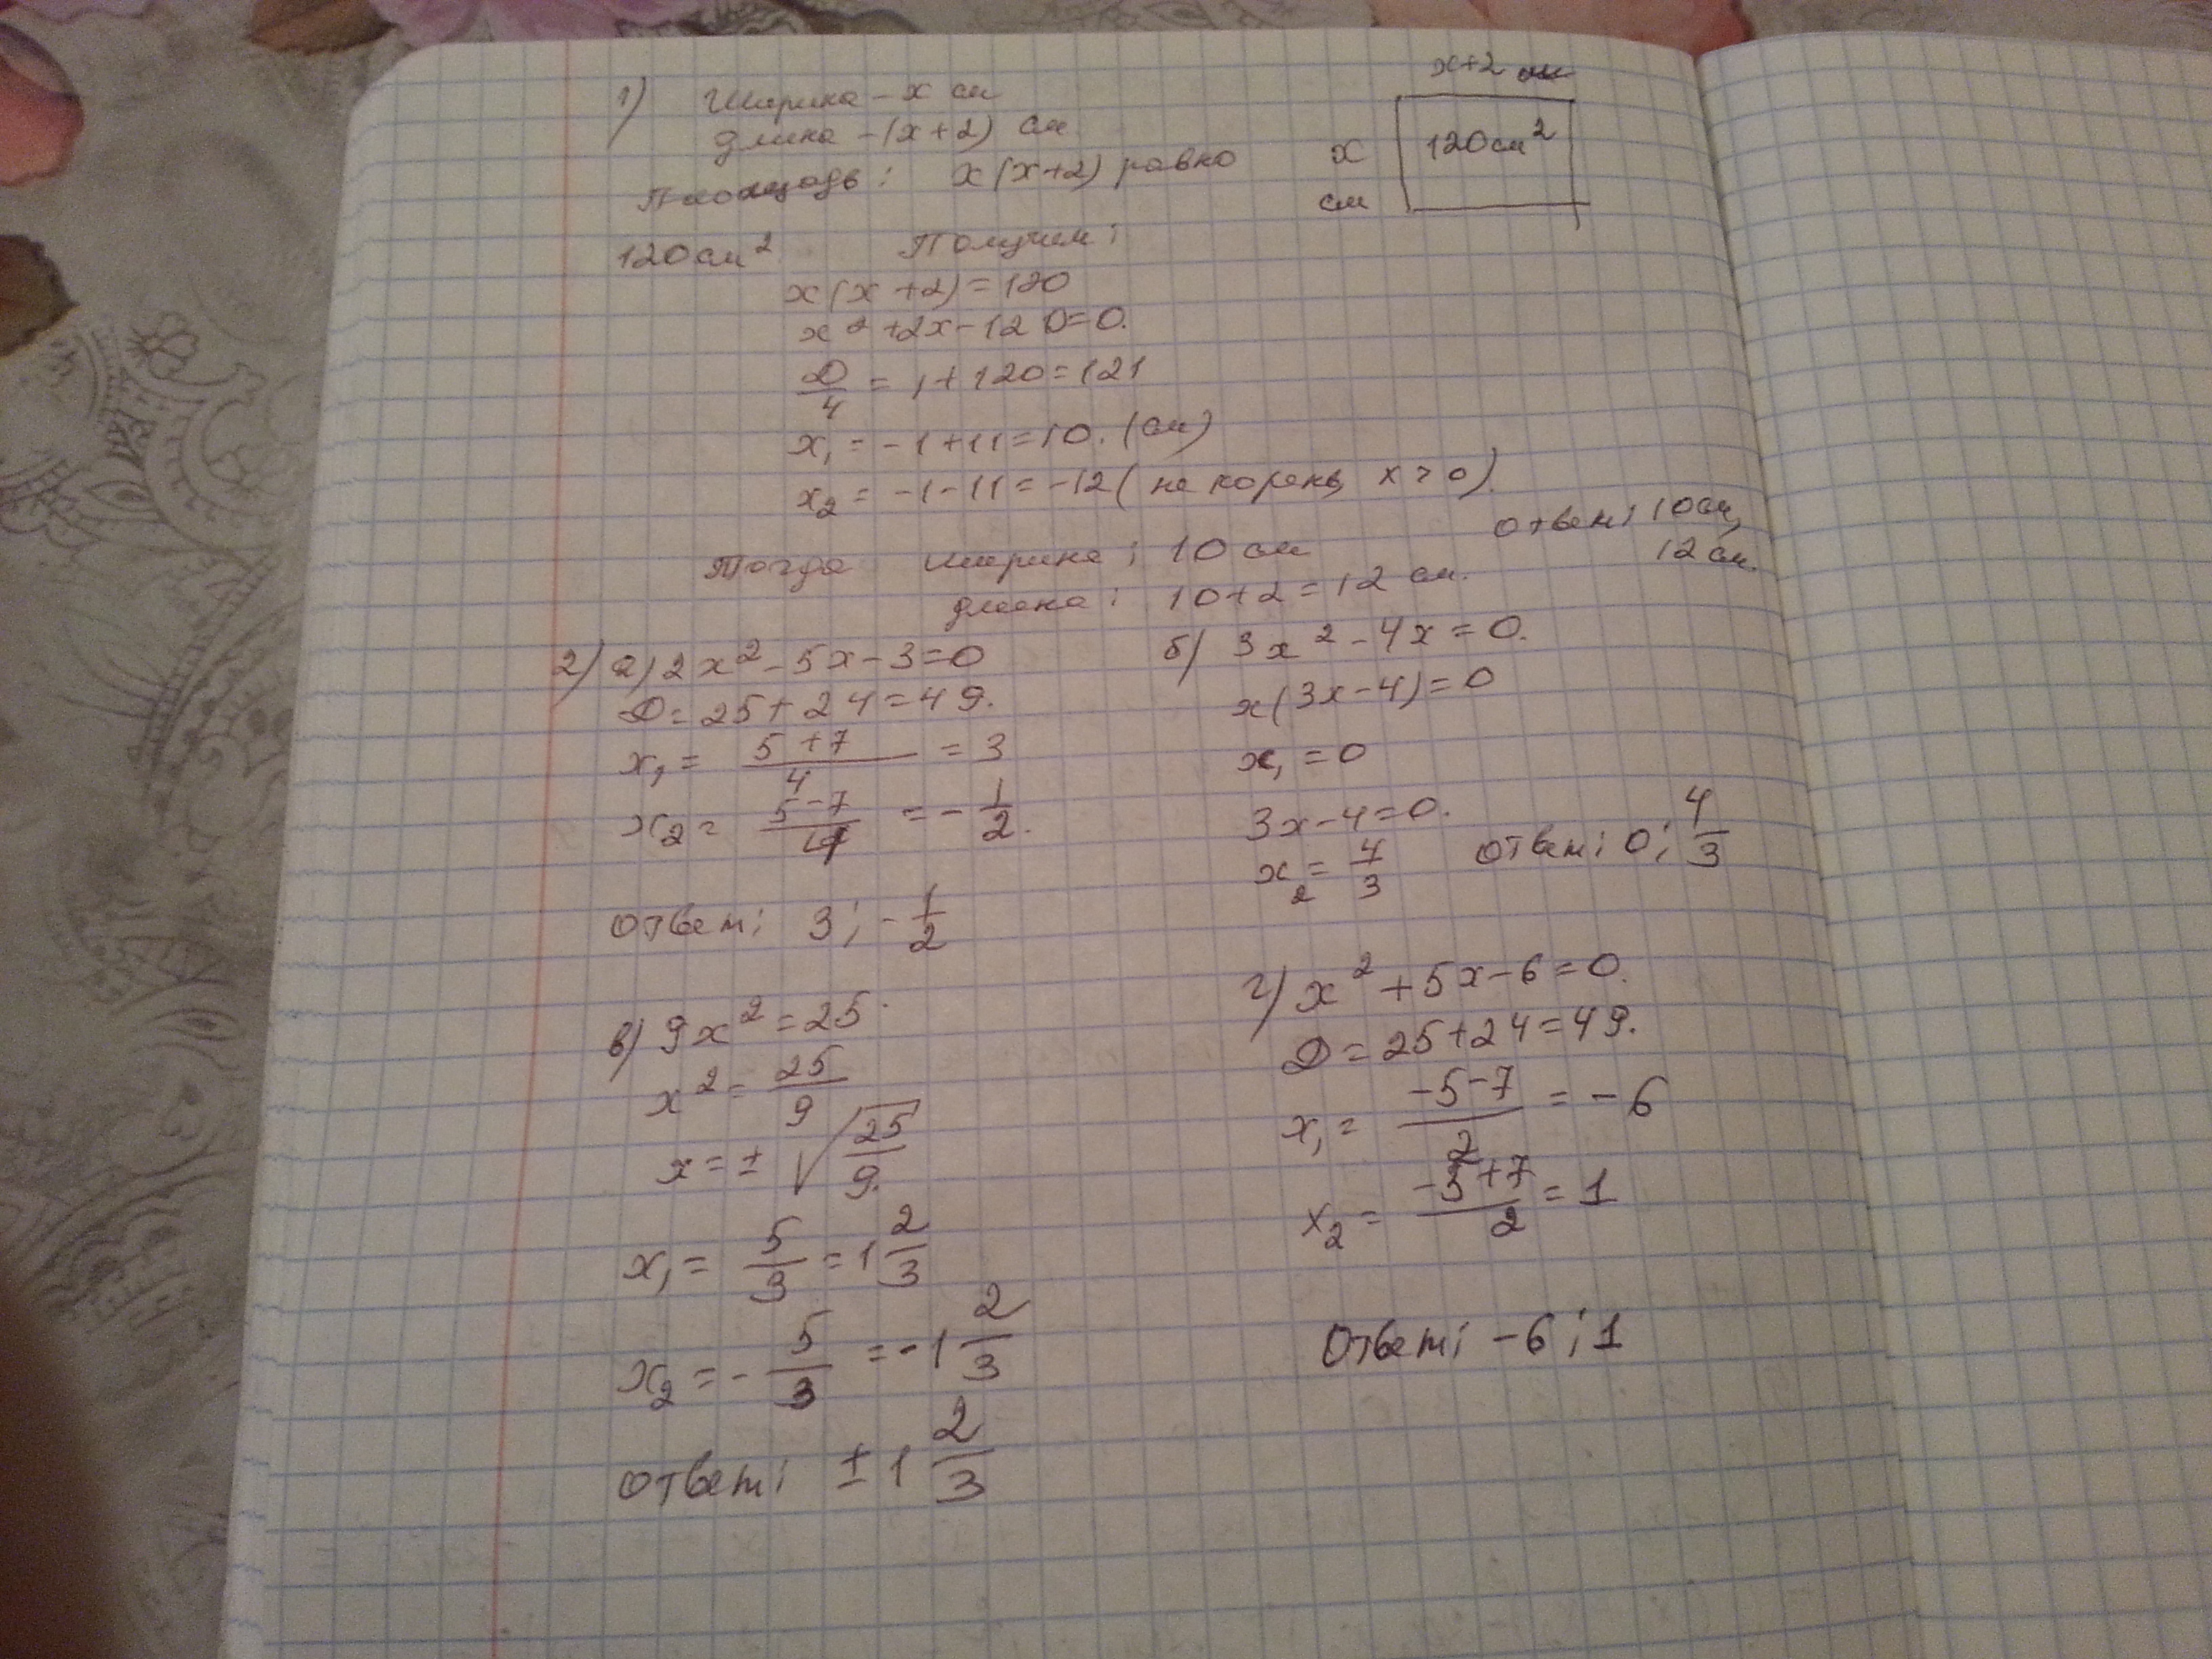 1) Ширина – x см
длина – (x+2) см
Площадь: x(x+2) равно
120см²  Получим:
x+2 см
x
см
120см²
x(x+2)=120
x²+2x-120=0.
D/4 = 1+120=121
x₁=-1+11=10. (см)
x₂=-1-11=-12 (не корень, x>0).
Тогда ширина: 10 см
длина: 10+2=12 см.
Ответ: 10см,
12 см.
2) а) 2x²-5x-3=0
D=25+24=49.
x₁= (5+7)/4 = 3
x₂= (5-7)/4 = -1/2.
Ответ: 3; -1/2
б) 3x²-4x=0.
x(3x-4)=0
x₁=0
3x-4=0.
x₂=4/3
Ответ: 0; 4/3
в) 9x²=25.
x²=25/9
x=±√(25/9).
x₁=5/3=1 2/3
x₂=-5/3=-1 2/3
Ответ: ±1 2/3
г) x²+5x-6=0.
D=25+24=49.
x₁= (-5-7)/2 = -6
x₂= (-5+7)/2 = 1
Ответ: -6; 1